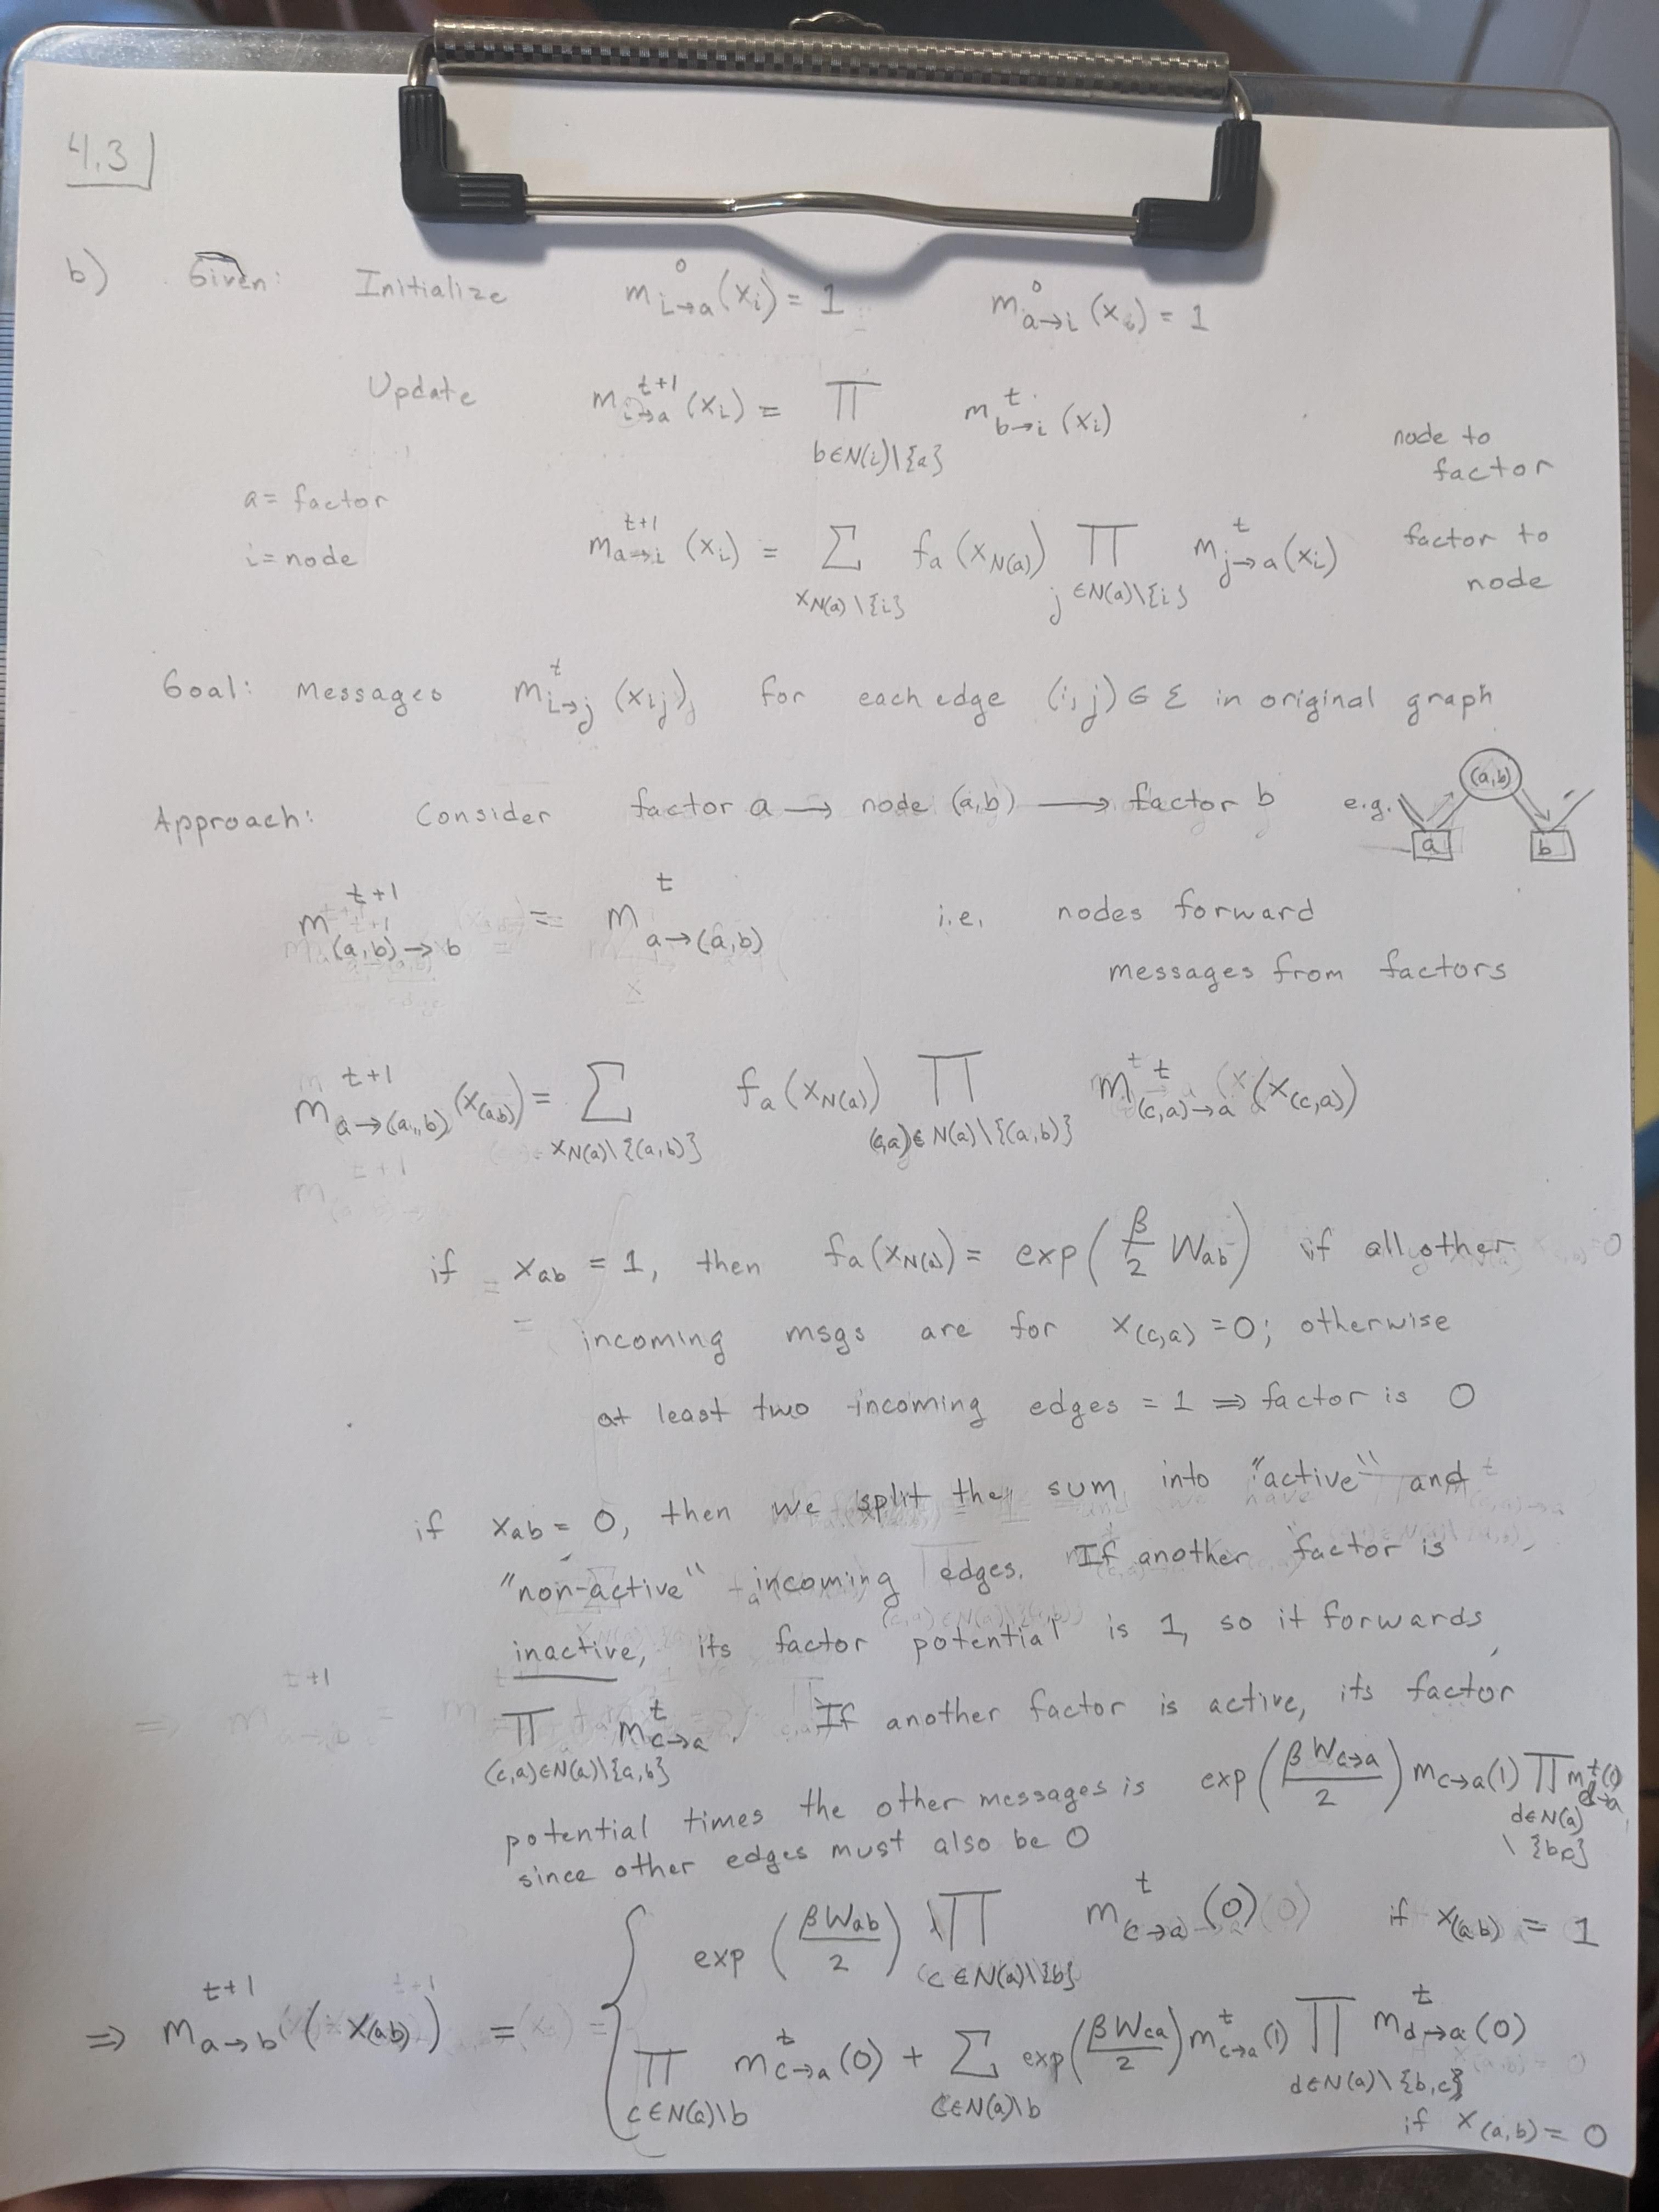 4.3
b) Given: Initialize m^0_{i→a}(x_i) = 1 m^0_{a→i}(x_i) = 1
Update m^{t+1}_{i→a}(x_i) = ∏_{b∈N(i)\{a}} m^t_{b→i}(x_i) node to factor
a = factor
i = node
m^{t+1}_{a→i}(x_i) = ∑_{x_{N(a)\{i}}} f_a(x_{N(a)}) ∏_{j∈N(a)\{i}} m^t_{j→a}(x_i) factor to node
Goal: Messages m^t_{i→j}(x_{ij}), for each edge (i,j) ∈ Ɛ in original graph
Approach: Consider factor a → node (a,b) → factor b e.g. a (a,b) b
m^{t+1}_{(a,b)→b} = m^t_{a→(a,b)} i.e. nodes forward
messages from factors
m^{t+1}_{a→(a,b)}(x_{(ab)}) = ∑_{x_{N(a)\{(a,b)}}} f_a(x_{N(a)}) ∏_{(c,a)∈N(a)\{(a,b)}} m^t_{(c,a)→a}(x_{(c,a)})
if x_{ab} = 1, then f_a(x_{N(a)}) = exp(β/2 W_{ab}) if all other
incoming msgs are for x_{(c,a)} = 0; otherwise
at least two incoming edges = 1 ⇒ factor is 0
if x_{ab} = 0, then we split the sum into "active" and
"non-active" incoming edges. If another factor is
inactive, its factor potential is 1, so it forwards
∏_{(c,a)∈N(a)\{a,b}} m^t_{c→a}. If another factor is active, its factor
potential times the other messages is exp(βW_{c→a}/2) m_{c→a}(1) ∏_{d∈N(a)\{b,c}} m^t_{d→a}(1)
since other edges must also be 0
⇒ m^{t+1}_{a→b}(x_{(ab)}) = { exp(βW_{ab}/2) ∏_{c∈N(a)\{b}} m^t_{c→a}(0) if x_{(ab)} = 1
∏_{c∈N(a)\b} m^t_{c→a}(0) + ∑_{c∈N(a)\b} exp(βW_{ca}/2) m^t_{c→a}(1) ∏_{d∈N(a)\{b,c}} m^t_{d→a}(0)
if x_{(a,b)} = 0